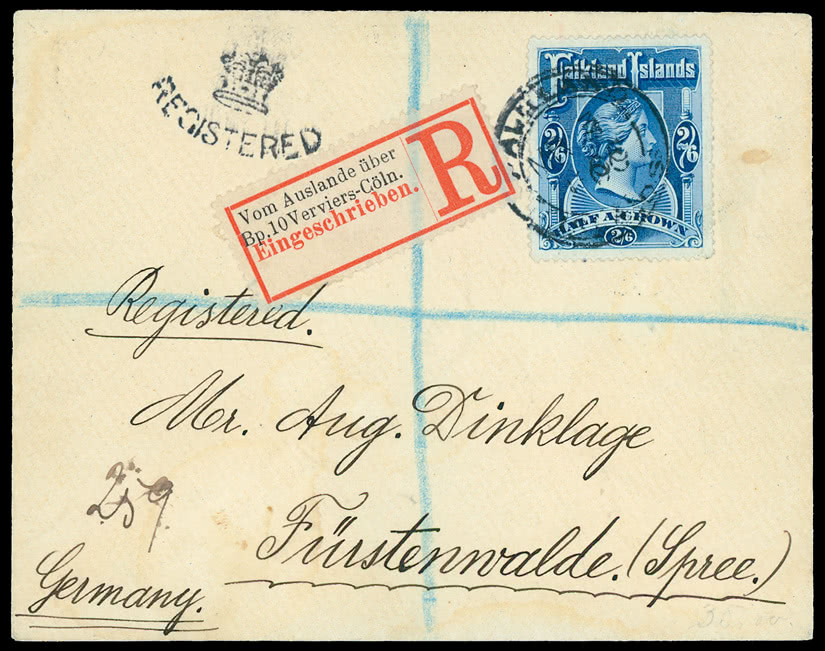 REGISTERED
Falkland Islands
2/6 2/6
HALF A CROWN
2/6
Vom Auslande über
Bp.10 Verviers-Cöln.
Eingeschrieben.
R
Registered.
Mr. Aug. Dinklage
259
Fürstenwalde. (Spree.)
Germany.